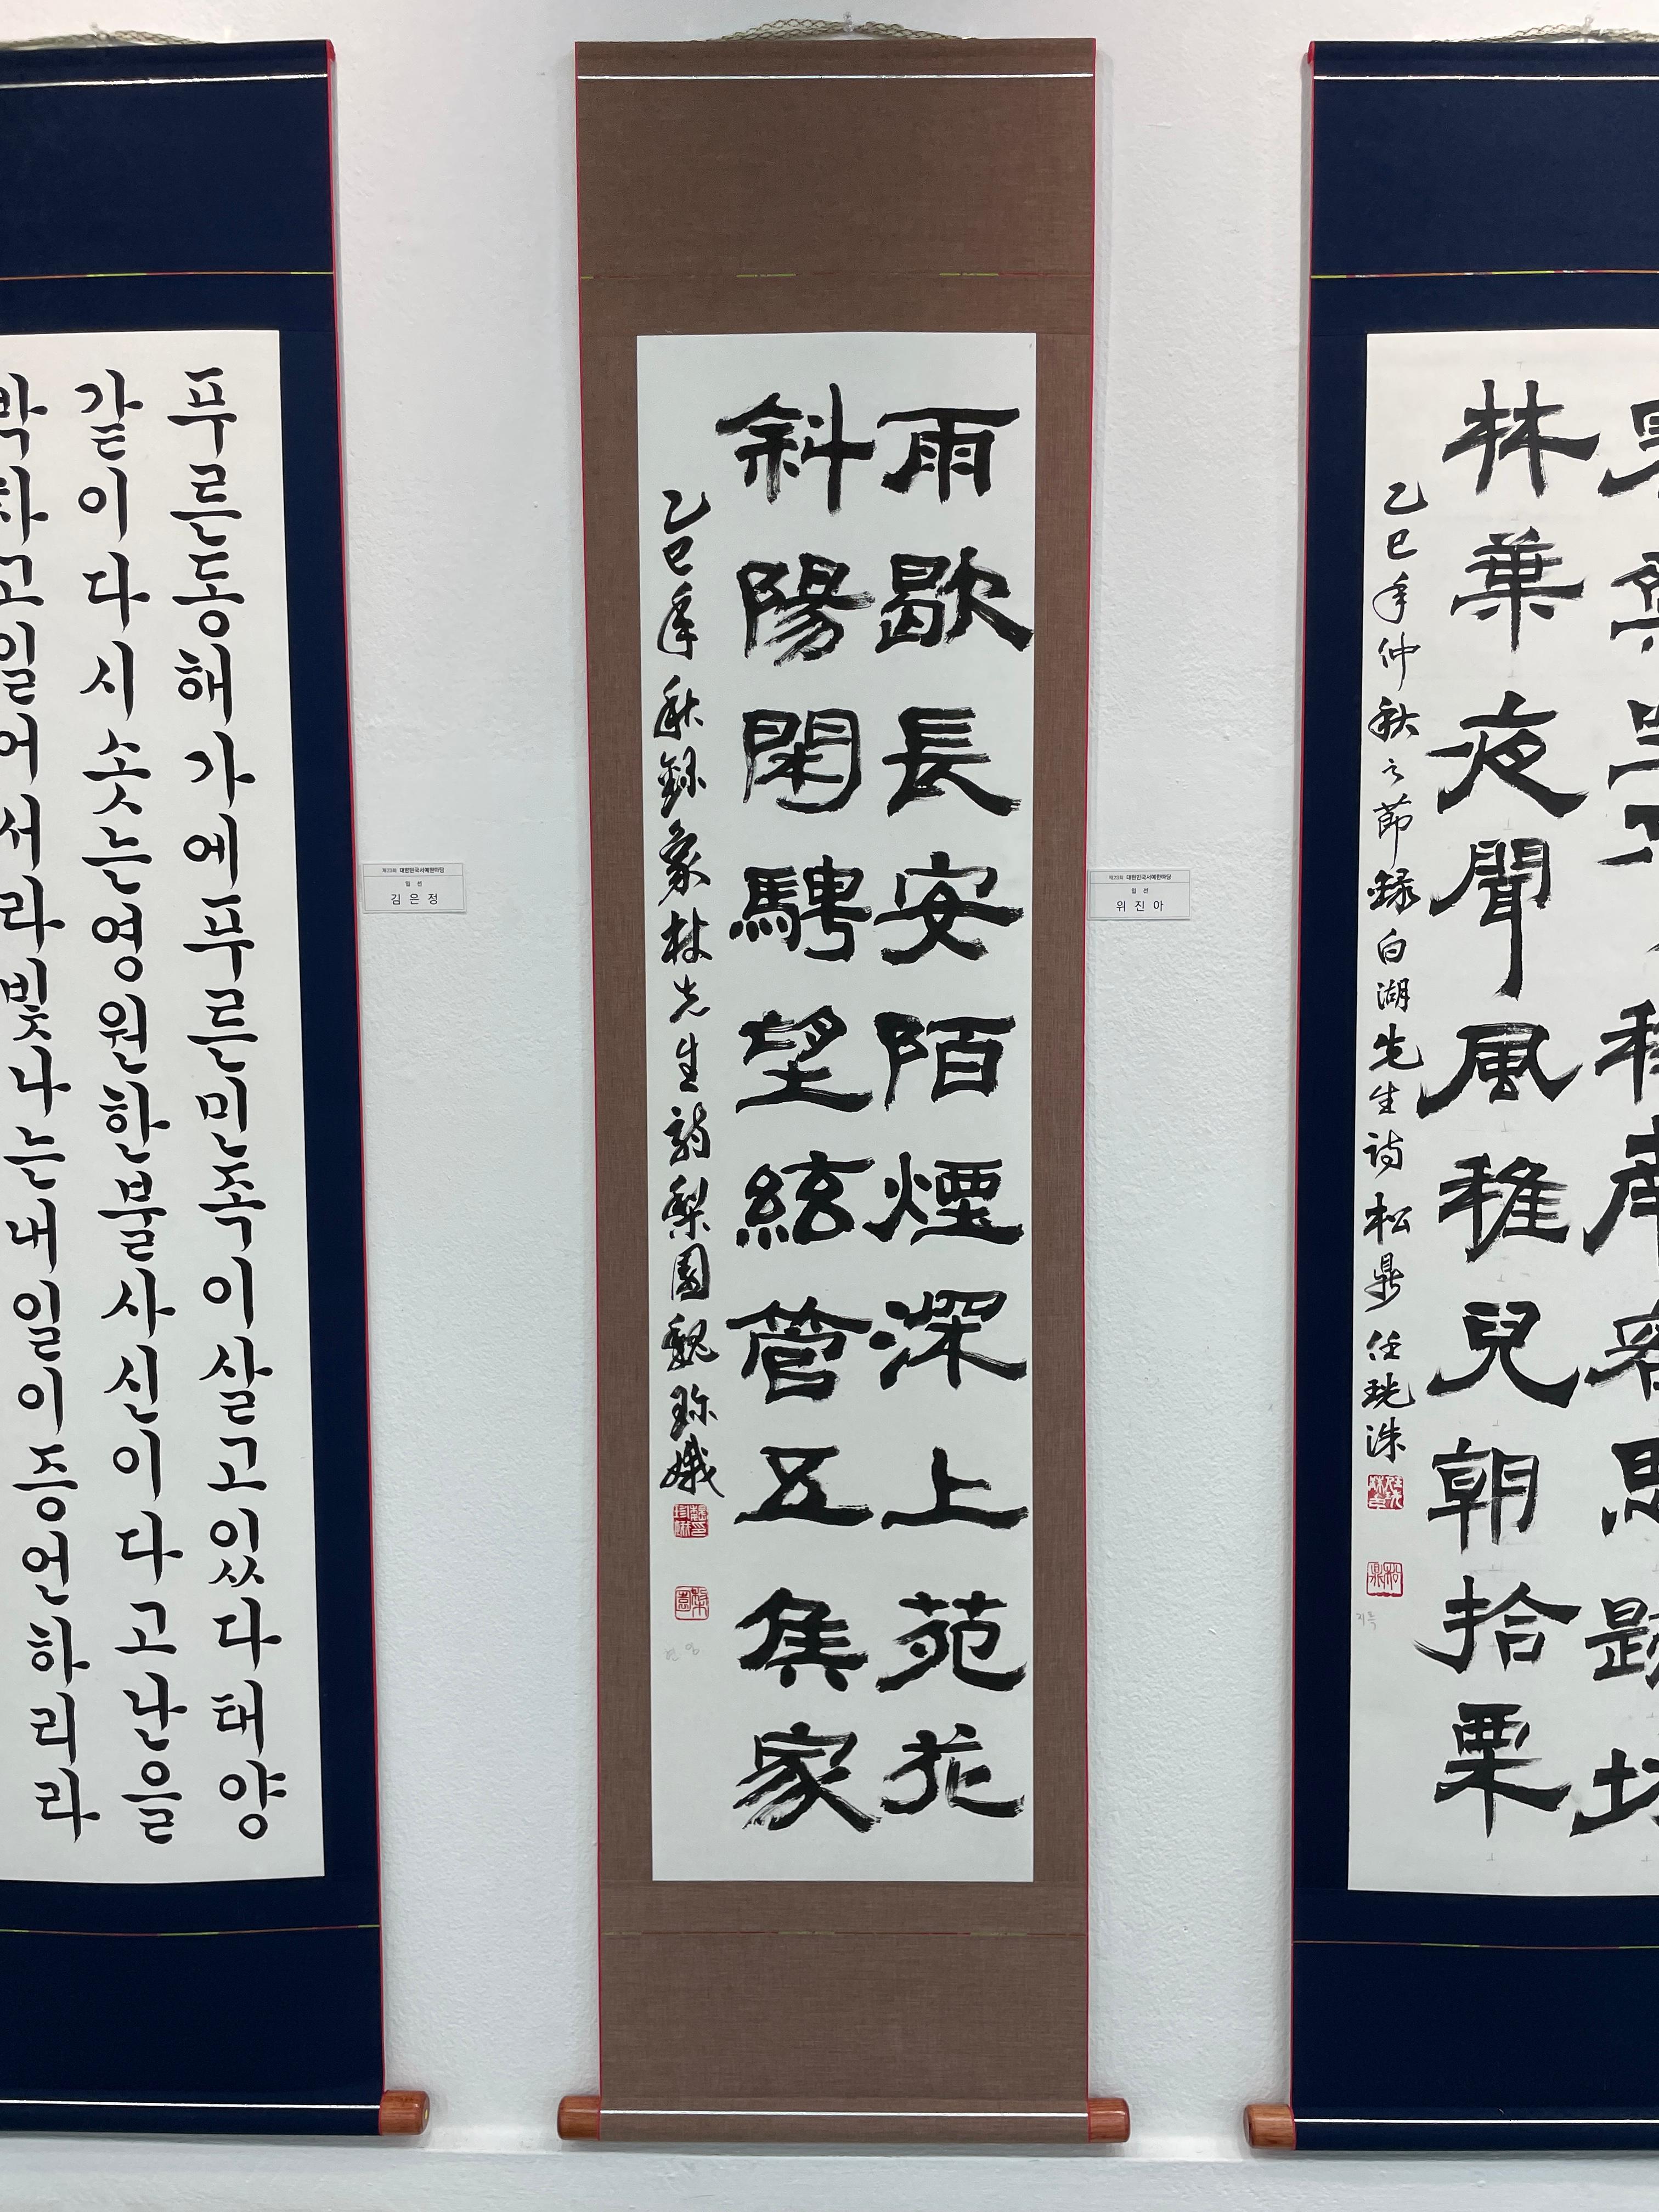 푸른동해가에푸른민족이살고있다태양
같이다시솟는영원한불사신이다고난을
박차고일어서라빛나는내일이증언하리라
대한민국서예한마당
입 선
김 은 정
雨歇長安陌煙深上苑花
斜陽閑騁望絃管五侯家
乙巳年秋錄象村先生詩梨園魏珍娥
대한민국서예한마당
입 선
위 진 아
林葉夜聞風稚兒朝拾栗
乙巳年仲秋之節錄白湖先生詩松鼎任珖洙